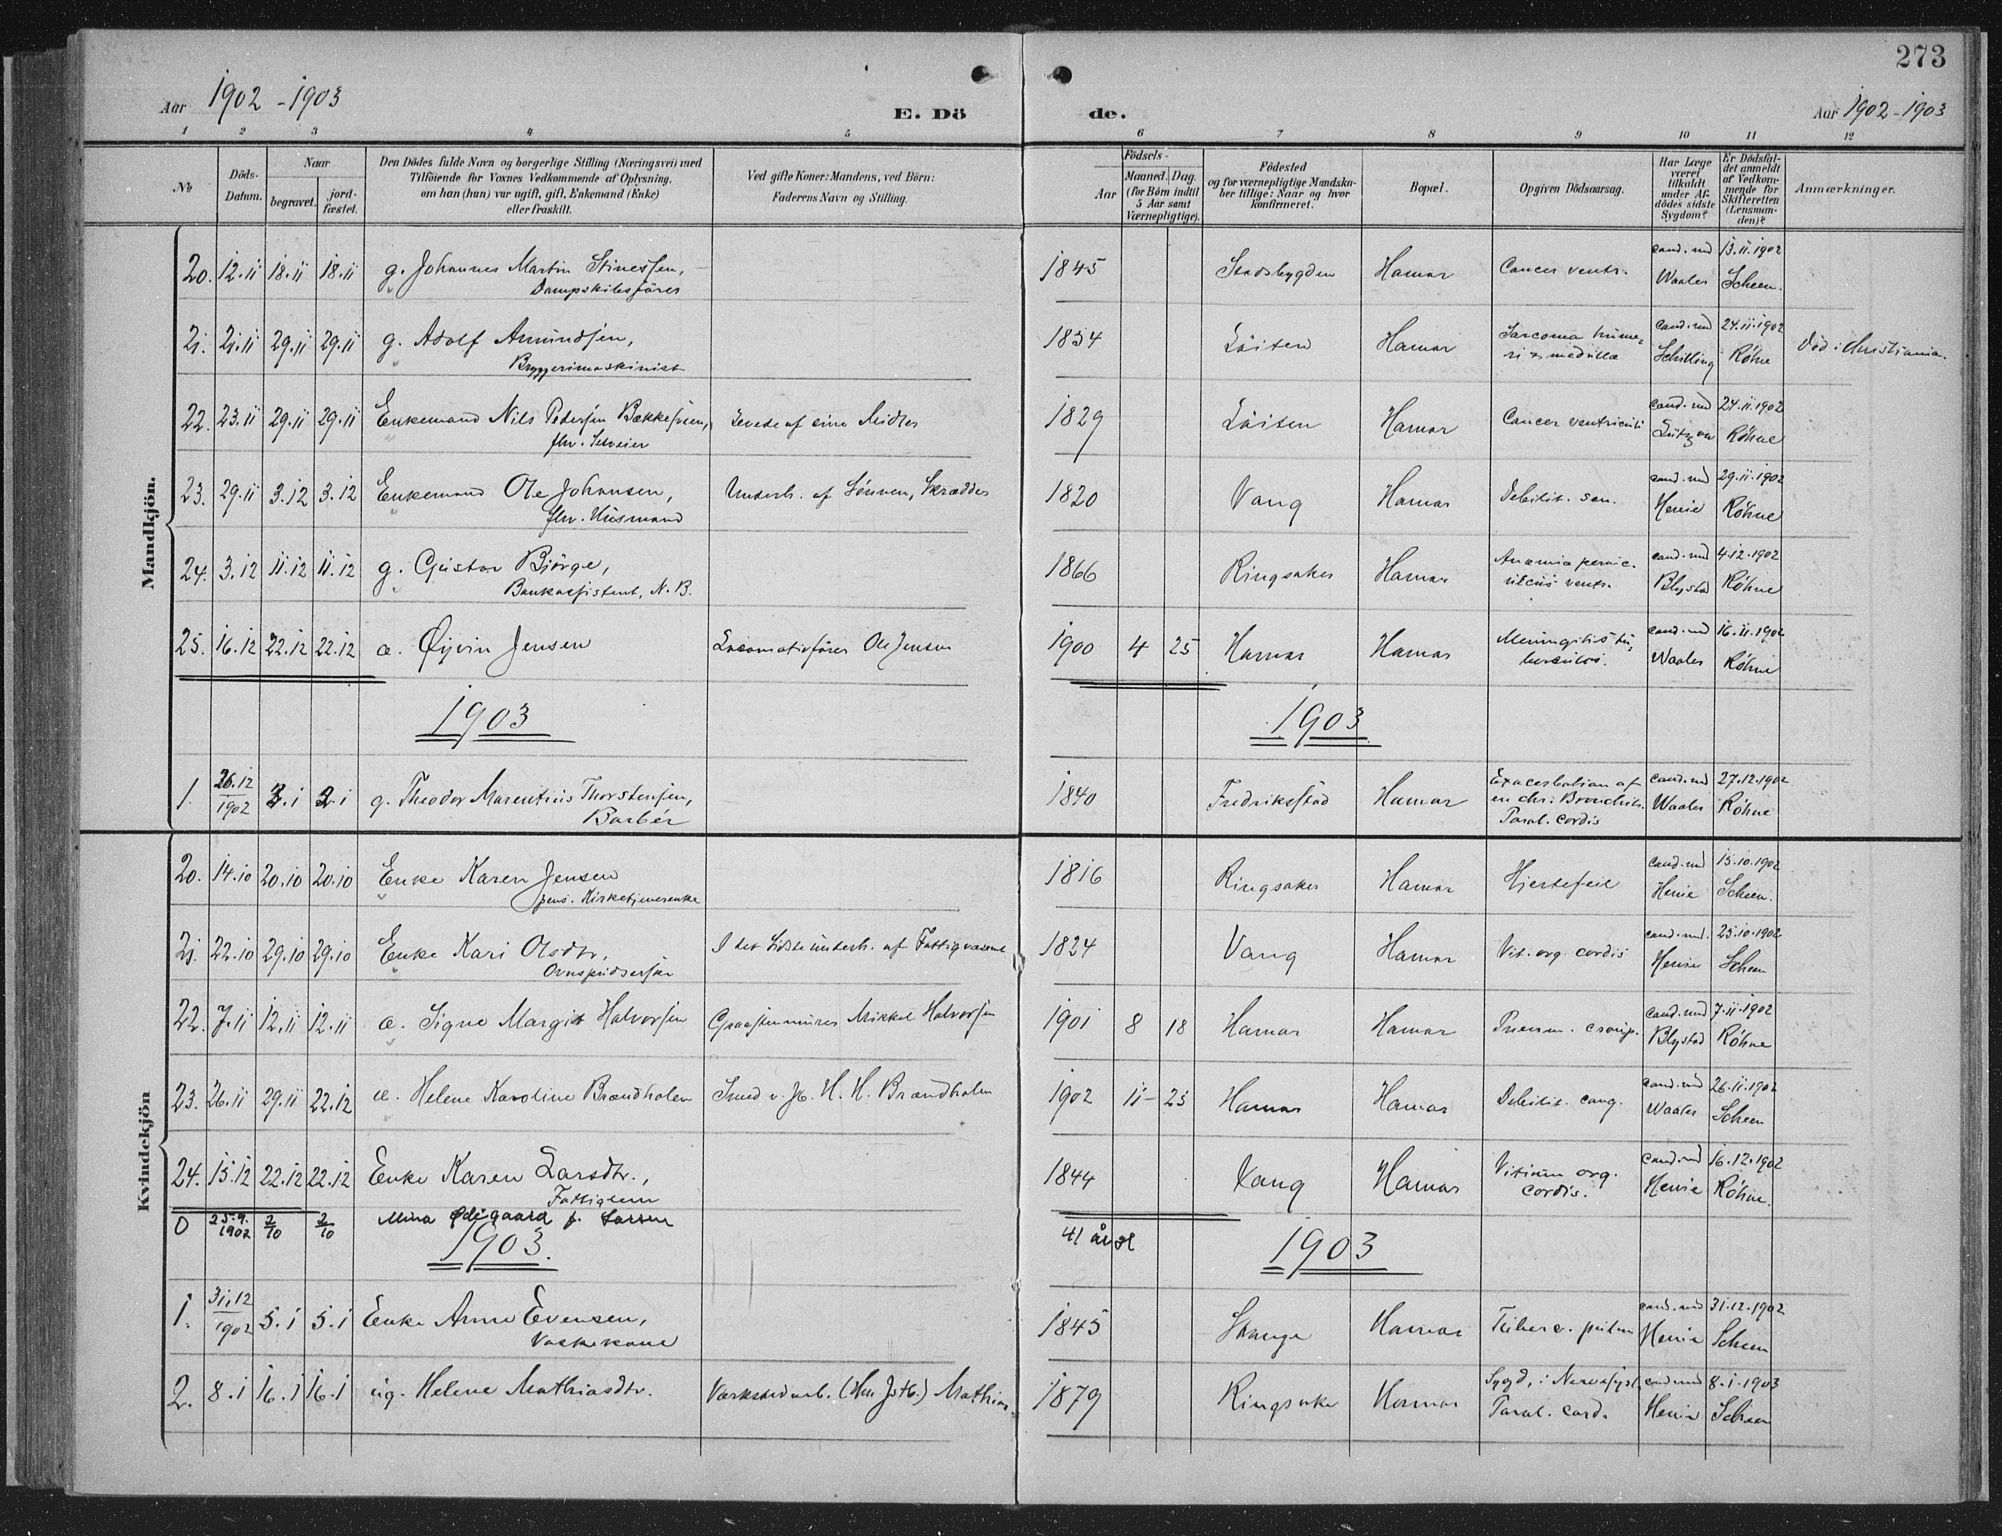 273
Aar 1902-1903
E. Dö
de.
Aar 1902-1903
1 2 3 4 5 6 7 8 9 10 11 12
No
Döds-Datum.
Naar
begravet.
jord-fæstet.
Den Dödes fulde Navn og borgerlige Stilling (Næringsvei) med
Tilföiende for Voxnes Vedkommende af Oplysning,
om han (hun) var ugift, gift, Enkemand (Enke)
eller fraskilt.
Ved gifte Koner: Mandens, ved Börn:
Faderens Navn og Stilling.
Födsels-
Aar
Maaned.
Dag.
(for Börn indtil
5 Aar samt
Værnepligtige).
Födested
og for værnepligtige Mandska-
ber tillige: Naar og hvor
konfirmeret.
Bopæl.
Opgiven Dödsaarsag.
Har Læge
været
tilkaldt
under Af-
dödes sidste
Sygdom?
Er Dödsfal-
det anmeldt
af Vedkom-
mende for
Skifteretten
(Lensman-
den)?
Anmærkninger.
Mandkjön.
20. 12.11 18.11 18.11 g. Johannes Martin Stinessen, 1845 Stadsbygden Hamar Cancer ventr. cand. med Waaler 13.11.1902 Scheen.
Dampskibsförer
21. 21.11 29.11 29.11 g. Adolf Amundsen, 1854 Löiten Hamar Sarcoma hume-
ri & medulla cand. med Schilling 24.11.1902 Röhne Död i Christiania.
Bryggerimaskinist
22. 23.11 29.11 29.11 Enkemand Nils Pedersen Bækkesveen, Levede af sine Midler 1829 Löiten Hamar Cancer ventriculi cand. med Lützow 24.11.1902 Röhne
fhv. Selveier
23. 29.11 3.12 3.12 Enkemand Ole Johansen, Underh. af Sönnen, Skrædder 1820 Vang Hamar Debilit. sen. cand. med Henie 29.11.1902 Röhne
fhv. Husmand
24. 3.12 11.12 11.12 g. Gustav Björge, 1866 Ringsaker Hamar Anæmia pernic.
ulcus ventr. cand. med Blystad 4.12.1902 Röhne
Bankassistent, N. B.
25. 16.12 22.12 22.12 a. Øivin Jensen Locomotivförer Ole Jensen 1900 4 25 Hamar Hamar Meningitis tu-
berculos. cand. med Waaler 16.11.1902 Röhne
1903
1903
1. 26.12 1902 3.1 3.1 g. Theodor Marentius Thorstensen, 1840 Fredriksstad Hamar Exacerbation af
en chr. Bronchit.
Paral. cordis cand. med Waaler 27.12.1902 Röhne
Barber
Kvindekjön
20. 14.10 20.10 20.10 Enke Karen Jensen 1816 Ringsaker Hamar Hjertefeil cand. med Henie 15.10.1902 Scheen.
pens. Kirketjenerenke
21. 22.10 29.10 29.10 Enke Kari Olsdtr, I det sidste underh. af Fattigvæsenet 1824 Vang Hamar Vit. org. cordis cand. med. Henie 25.10.1902 Scheen
Ovnspudserske
22. 7.11 12.11 12.11 a. Signe Margit Halvorsen Graastensmurer Mikkel Halvorsen 1901 8 18 Hamar Hamar Pneum. croup. cand. med Blystad 7.11.1902 Röhne
23. 26.11 29.11 22.12 a. Helene Karoline Brændholen Smed v. Jb. H. H. Brændholen 1902 11 - 25 Hamar Hamar Debilit. cong. cand. med Waaler 26.11.1902 Scheen
24. 15.12 22.12 22.12 Enke Karen Larsdtr., 1844 Vang Hamar Vitium org.
cordis. cand. med Henie 16.12.1902 Röhne.
Fattiglem
0 25.9. 1902 2/10 2/10 Mina Ødegaard f. Larsen 41 år gl
1903.
1903
1. 31.12 1902 5.1 5.1 Enke Anne Evensen, 1845 Stange Hamar Tuberc. pulm cand. med Henie 31.12.1902 Scheen
Vaskekone
2. 8.1 16.1 16.1 ug. Helene Mathiasdtr. Værkstedarb. (Ham. Jstb.) Mathias 1879 Ringsaker Hamar Sygd. i Nervesyst.
Paral. cord. cand. med Henie 8.1.1903 Scheen